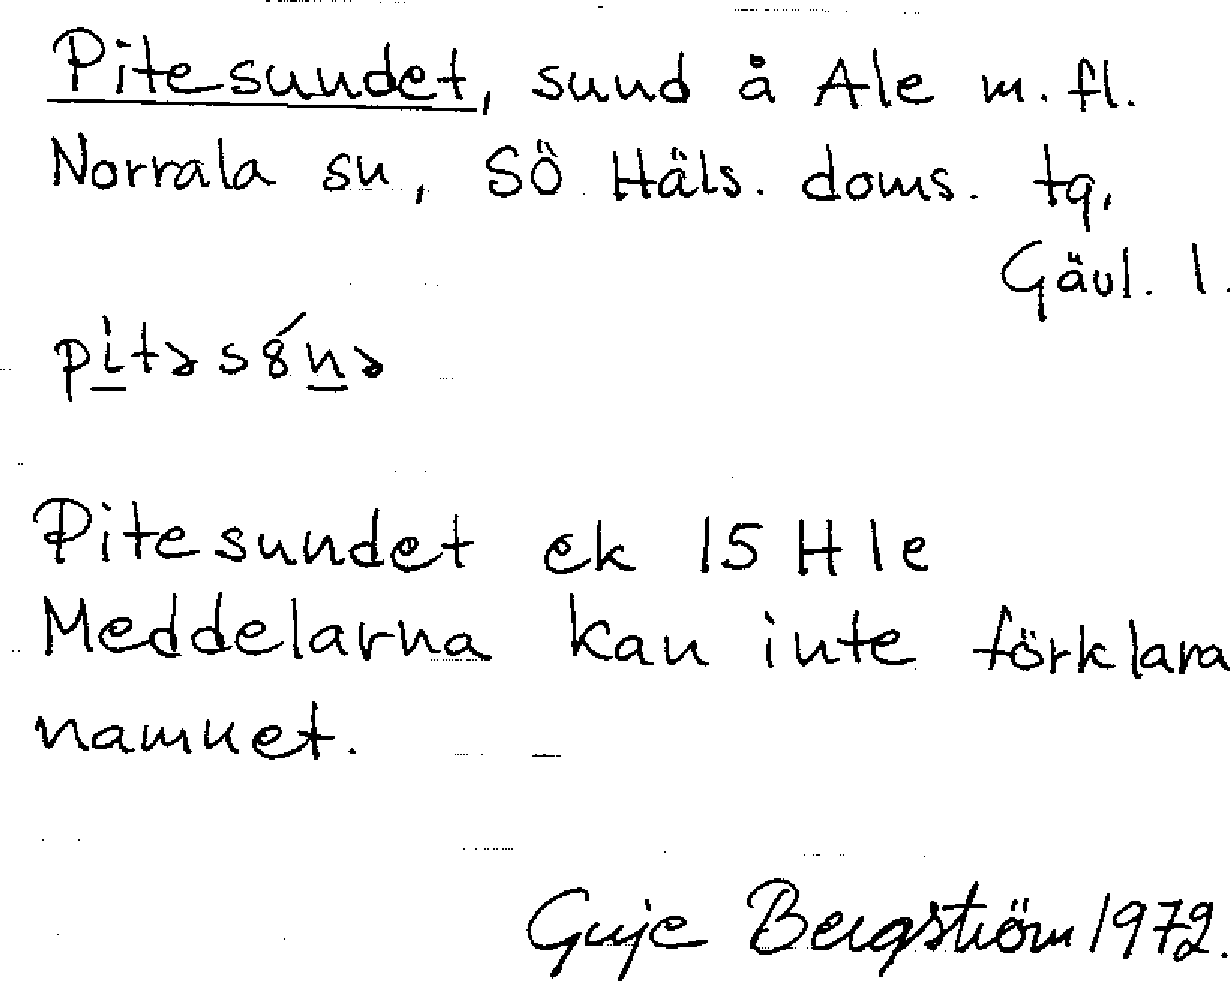 Pitesundet, sund å Ale m. fl.
Norrala sn, SÖ. Häls. doms. tg,
Gävl. l.
pi̲təsȣ́n̲ə
Pitesundet ek 15 H 1e
Meddelarna kan inte förklara
namnet.
Guje Bergström 1972.